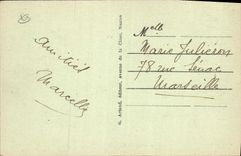 Amitiés
Marcelle
G. Artaud, éditeur, avenue de la Close, Nantes
Melle
Marie Julieron
78 rue Sénac
Marseille